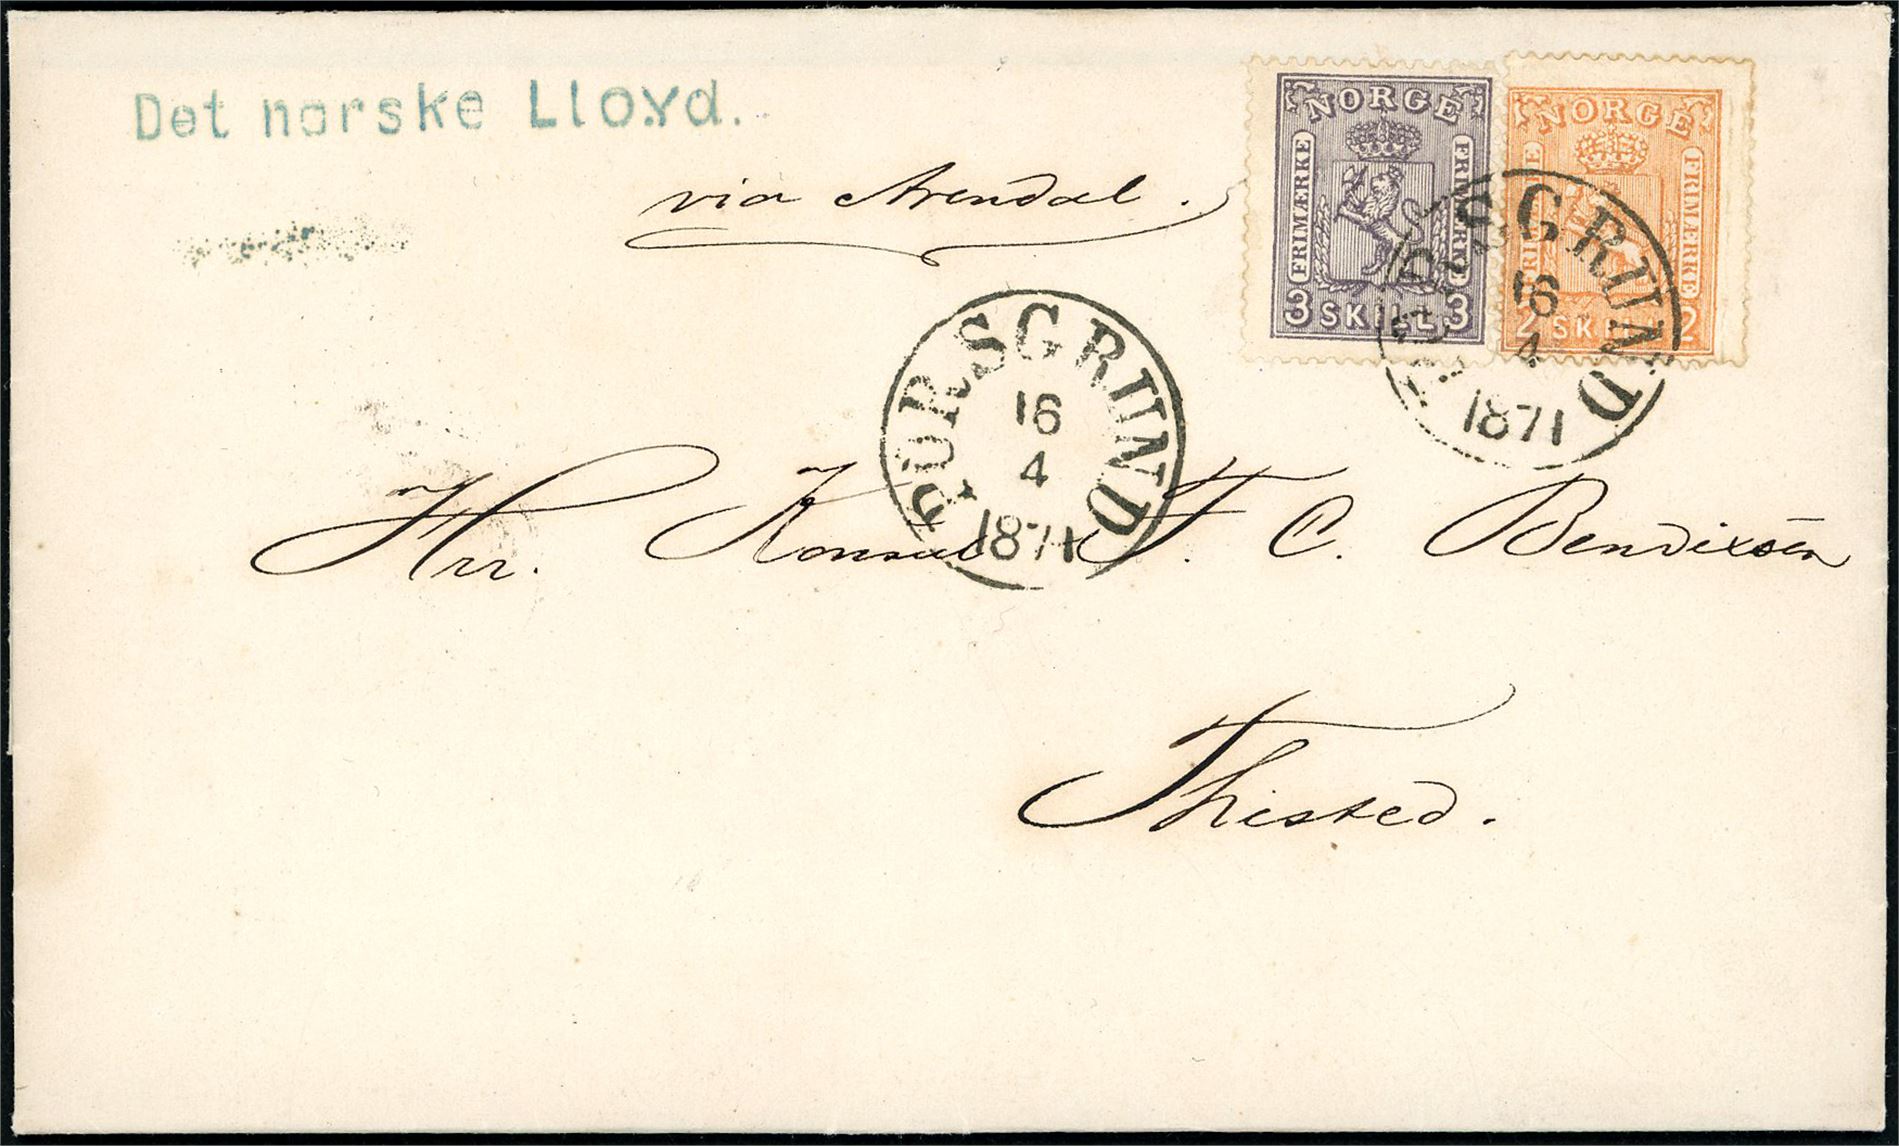 Det norske Lloyd.
via Arendal.
NORGE
FRIMÆRKE
FRIMÆRKE
3 SKILL 3
NORGE
FRIMÆRKE
FRIMÆRKE
2 SKILL 2
PORSGRUND
16
4
1871
PORSGRUND
16
4
1871
Hrr. Konsul F. C. Bendixsen
Thisted.